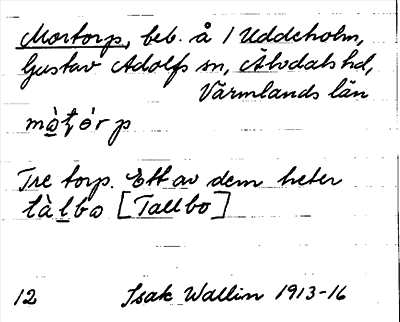 Mortorp, beb. å 1 Uddeholm,
Gustav Adolfs sn, Älvdals hd,
Värmlands län
màt̡ór p
Tre torp. Ett av dem heter
tàl̲bo [Tallbo]
12 Isak Wallin 1913-16